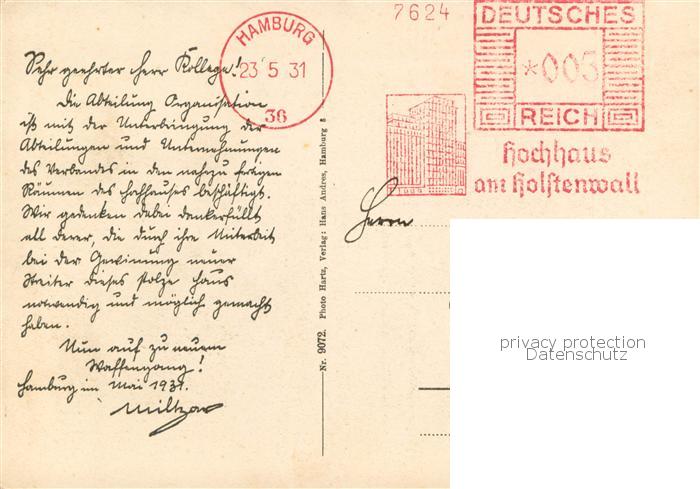 Sehr geehrter Herr Kollege!
Die Abteilung Organisation
ist mit der Unterbringung der
Abteilungen und Unternehmungen
des Verbandes in den nahezu fertigen
Räumen des Hochhauses beschäftigt.
Wir gedenken dabei dankerfüllt
all derer, die durch ihre Mitarbeit
bei der Gewinnung neuer
Streiter dieses stolze Haus
notwendig und möglich gemacht
haben.
Nun auf zu neuem
Waffengang!
Hamburg im Mai 1931.
Miltzow
HAMBURG
23 5 31
36
7624
DEUTSCHES
*005
REICH
Hochhaus
am Holstenwall
Nr. 9072. Photo Hartz, Verlag: Hans Andres, Hamburg 8
Herrn
privacy protection
Datenschutz